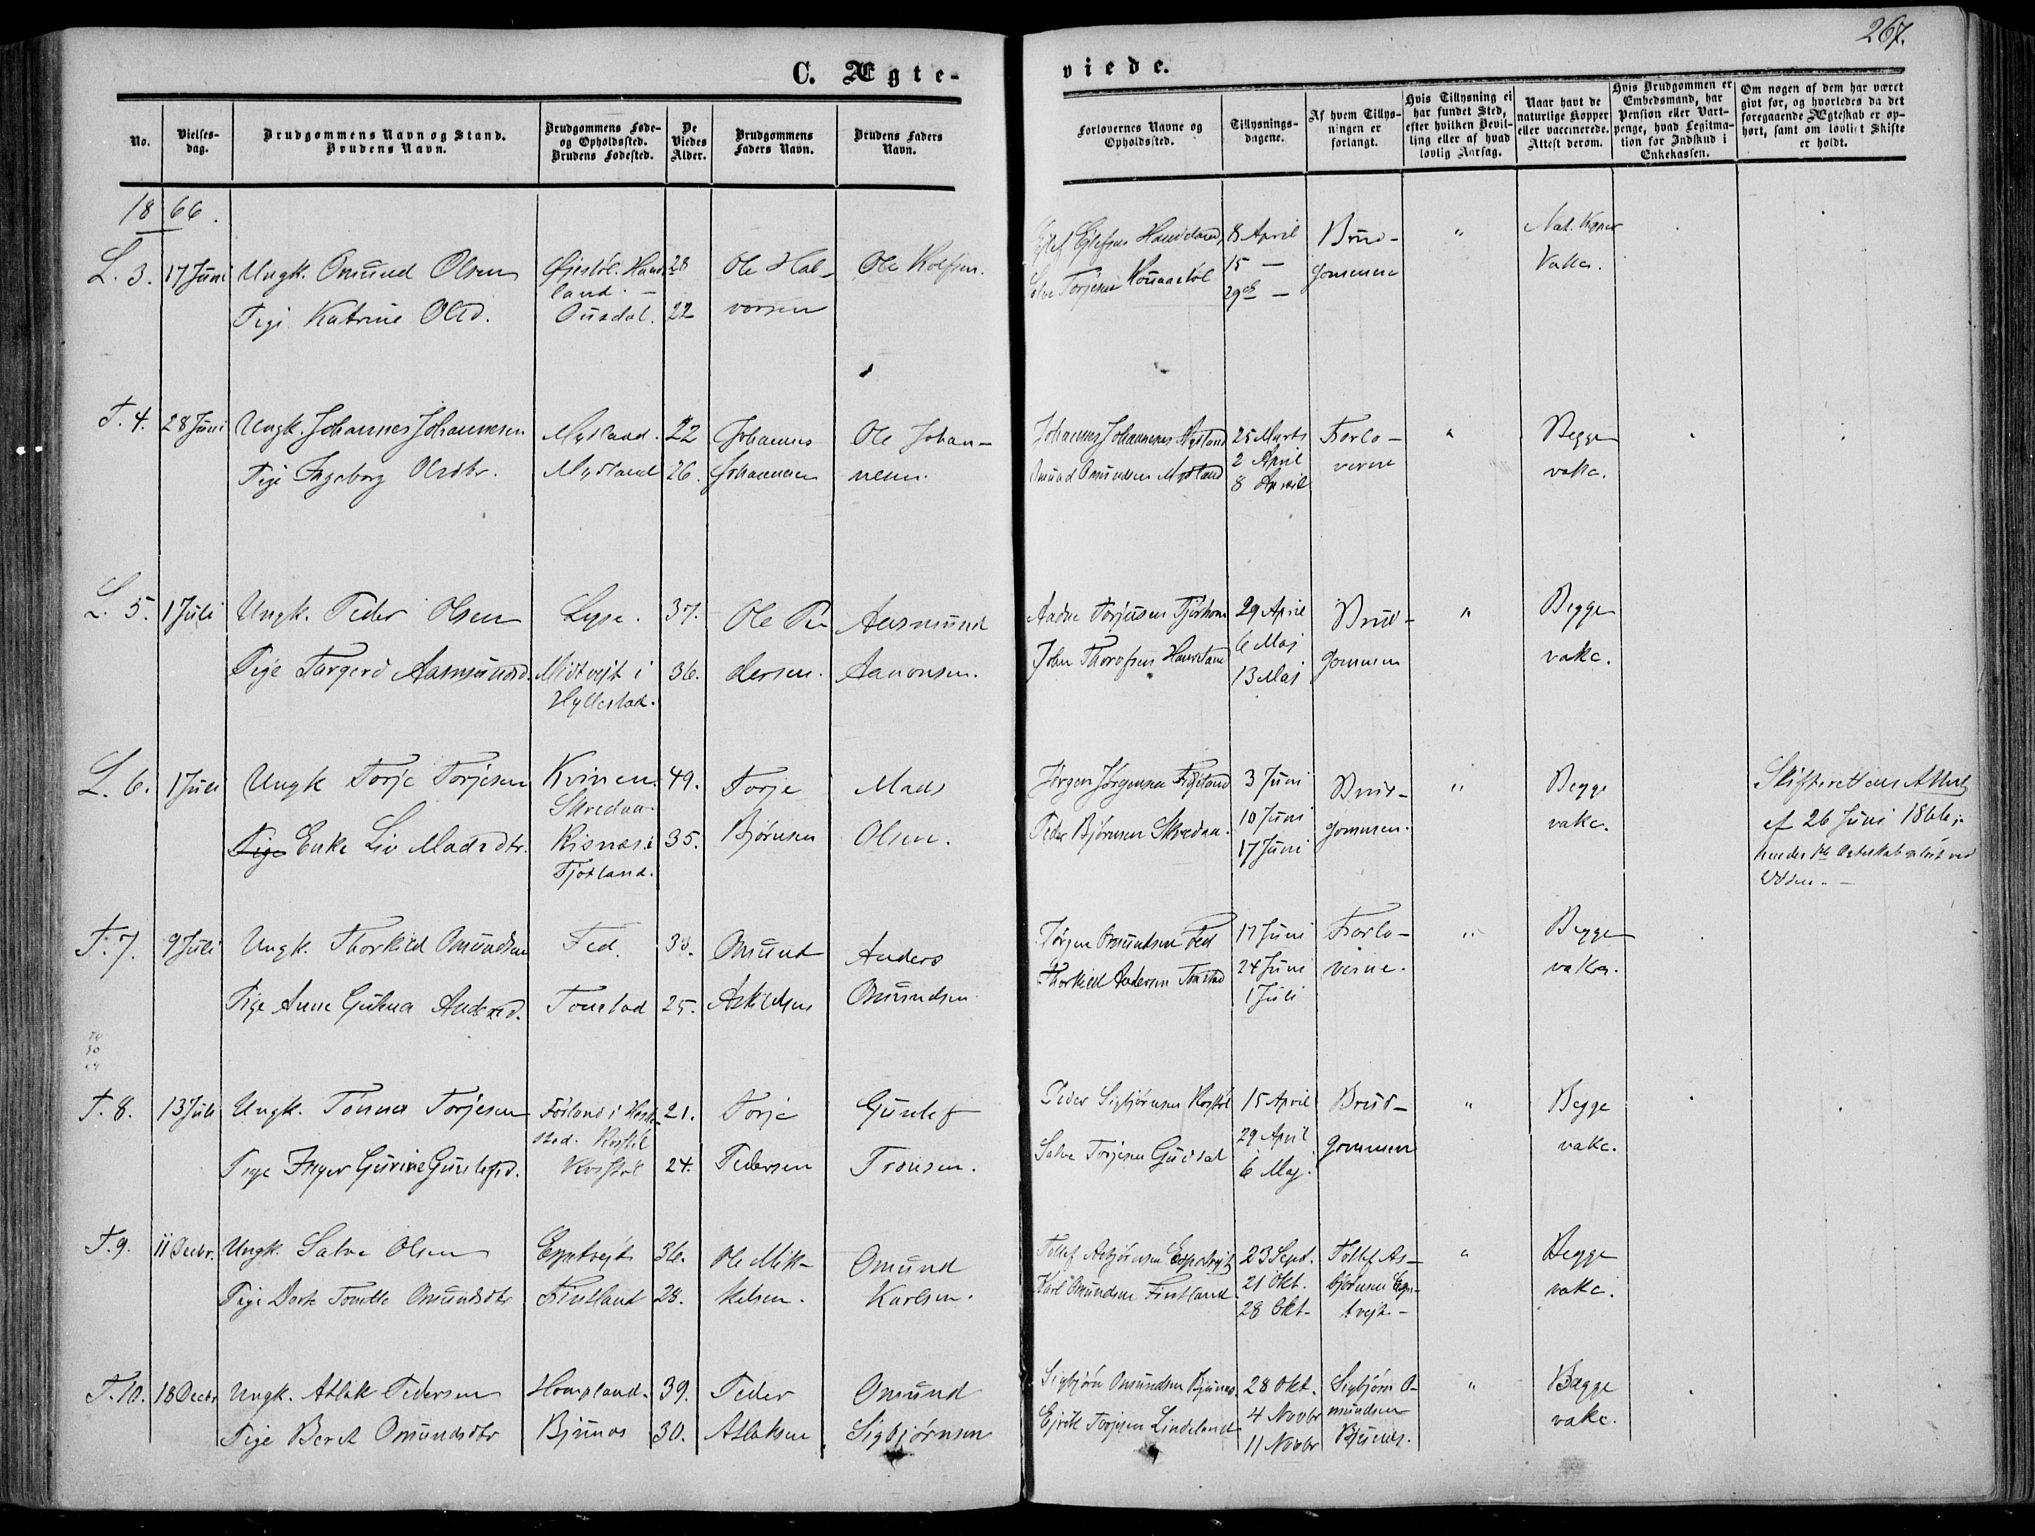 267.
C. Ægte-
viede.
No.
Vielses-
dag.
Brudgommens Navn og Stand.
Brudens Navn.
Brudgommens Føde-
og Opholdssted.
Brudens Fødested.
De
Viedes
Alder.
Brudgommens
Faders Navn.
Brudens Faders
Navn.
Forlovernes Navne og
Opholdssted.
Tillysnings-
dagene.
Af hvem Tillys-
ningen er
forlangt.
Hvis Tillysning ei
har fundet Sted,
efter hvilken Bevil-
ling eller af hvad
lovlig Aarsag.
Naar havt de
naturlige Kopper
eller vaccinerede.
Attest derom.
Hvis Brudgommen er
Embedsmand, har
Pension eller Vart-
penge, hvad Legitima-
tion for Indskud i
Enkekassen.
Om nogen af dem har været
givt før, og hvorledes da det
foregaaende Ægteskab er op-
hørt, samt om lovligt Skifte
er holdt.
1866.
L. 3. 17 Juni Ungk. Omund Olsen 28 Ole Hal- Ole Rolfsen. Ejlef Ejlefsen 8 April Brud- " Nat. Kopper
land. Salve Torjesen 15 — gommen Vakc.
Pige Katrine Olsd. Ousdal. 22 vorsen 29de —
F. 4. 28 Juni Ungk. Johannes Johannesen Mydland. 22 Johannes Ole Johan- Johannes Johannesen Mydland 25 Marts Forlo- " Begge
Pige Ingeborg Olsdtr. Mydland 26. Johannesen nesen. Omund Omundsen Mydland 2 April verne vakc.
8 April
L. 5. 1 Juli Ungk. Peder Olsen Lyse. 37. Ole Pe- Aasmund Aadne Torjusen Tjørhom 29 April Brud- " Begge
Pige Torgerd Aasmundsd. Midtvejt i 36. dersen. Aanonsen. John 6 Maj gommen vakc.
Hyllestad. 13 Maj
L. 6. 1 Juli Ungk Torje Torjesen Kvinen 49. Torje Mads Jørgen Jørgensen 3 Juni Brud- " Begge Skifterettens Attest
Skredaa
Pige Enke Liv Madsdtr. Risnæs i 35. Bjørnsen Olsen. Peder Bjørnsen Skredaa. 10 Juni gommen. vakc. af 26 Juni 1866;
Fjotland. 17 Juni
F. 7. 9 Juli Ungk. Thorkild Omundsen Fed. Omund Anders Jørgen Omundsen Fed 17 Juni Forlo- " Begge
Pige Anne Andersd. Tonstad 25. Askildsen Omundsen Thorkild Andersen Tonstad 24 Juni verne. vakc.
1 Juli
F. 8. 13 Juli Ungk. Tønnes Torjesen Førland i Hesk- 21. Torje Gunlef Peder Sigbjørnsen 15 April Brud- " Begge
stad.
Pige Inger Gurine Gunlefsd. 24. Pedersen Tronsen. Salve Torjesen Gusdal 29 April gommen vakc.
6 Maj.
F. 9. 11 Decbr. Ungk. Salve Olsen Espetvejt 36. Ole Mik- Omund Tollef Asbjørnsen Espetvejt 23 Sept. Tollef As- " Begge
Pige Omundsdtr Fintland 28. kelsen. Karlsen. Karl Omundsen Fintland. 21 Okt. bjørnsen Espe- vakc.
28 Okt. tvejt.
F. 10. 18 Decbr Ungk. Atlak Pedersen Hompland. 39. Peder Omund Sigbjørn Omundsen Bjunes 28 Okt. Sigbjørn O- " Begge
Pige Berit Omundsdtr Bjunes 30. Atlaksen Sigbjørnsen Ejvik Torjesen Lindeland 4 Novbr mundsen vakc.
11 Novbr Bjunes.